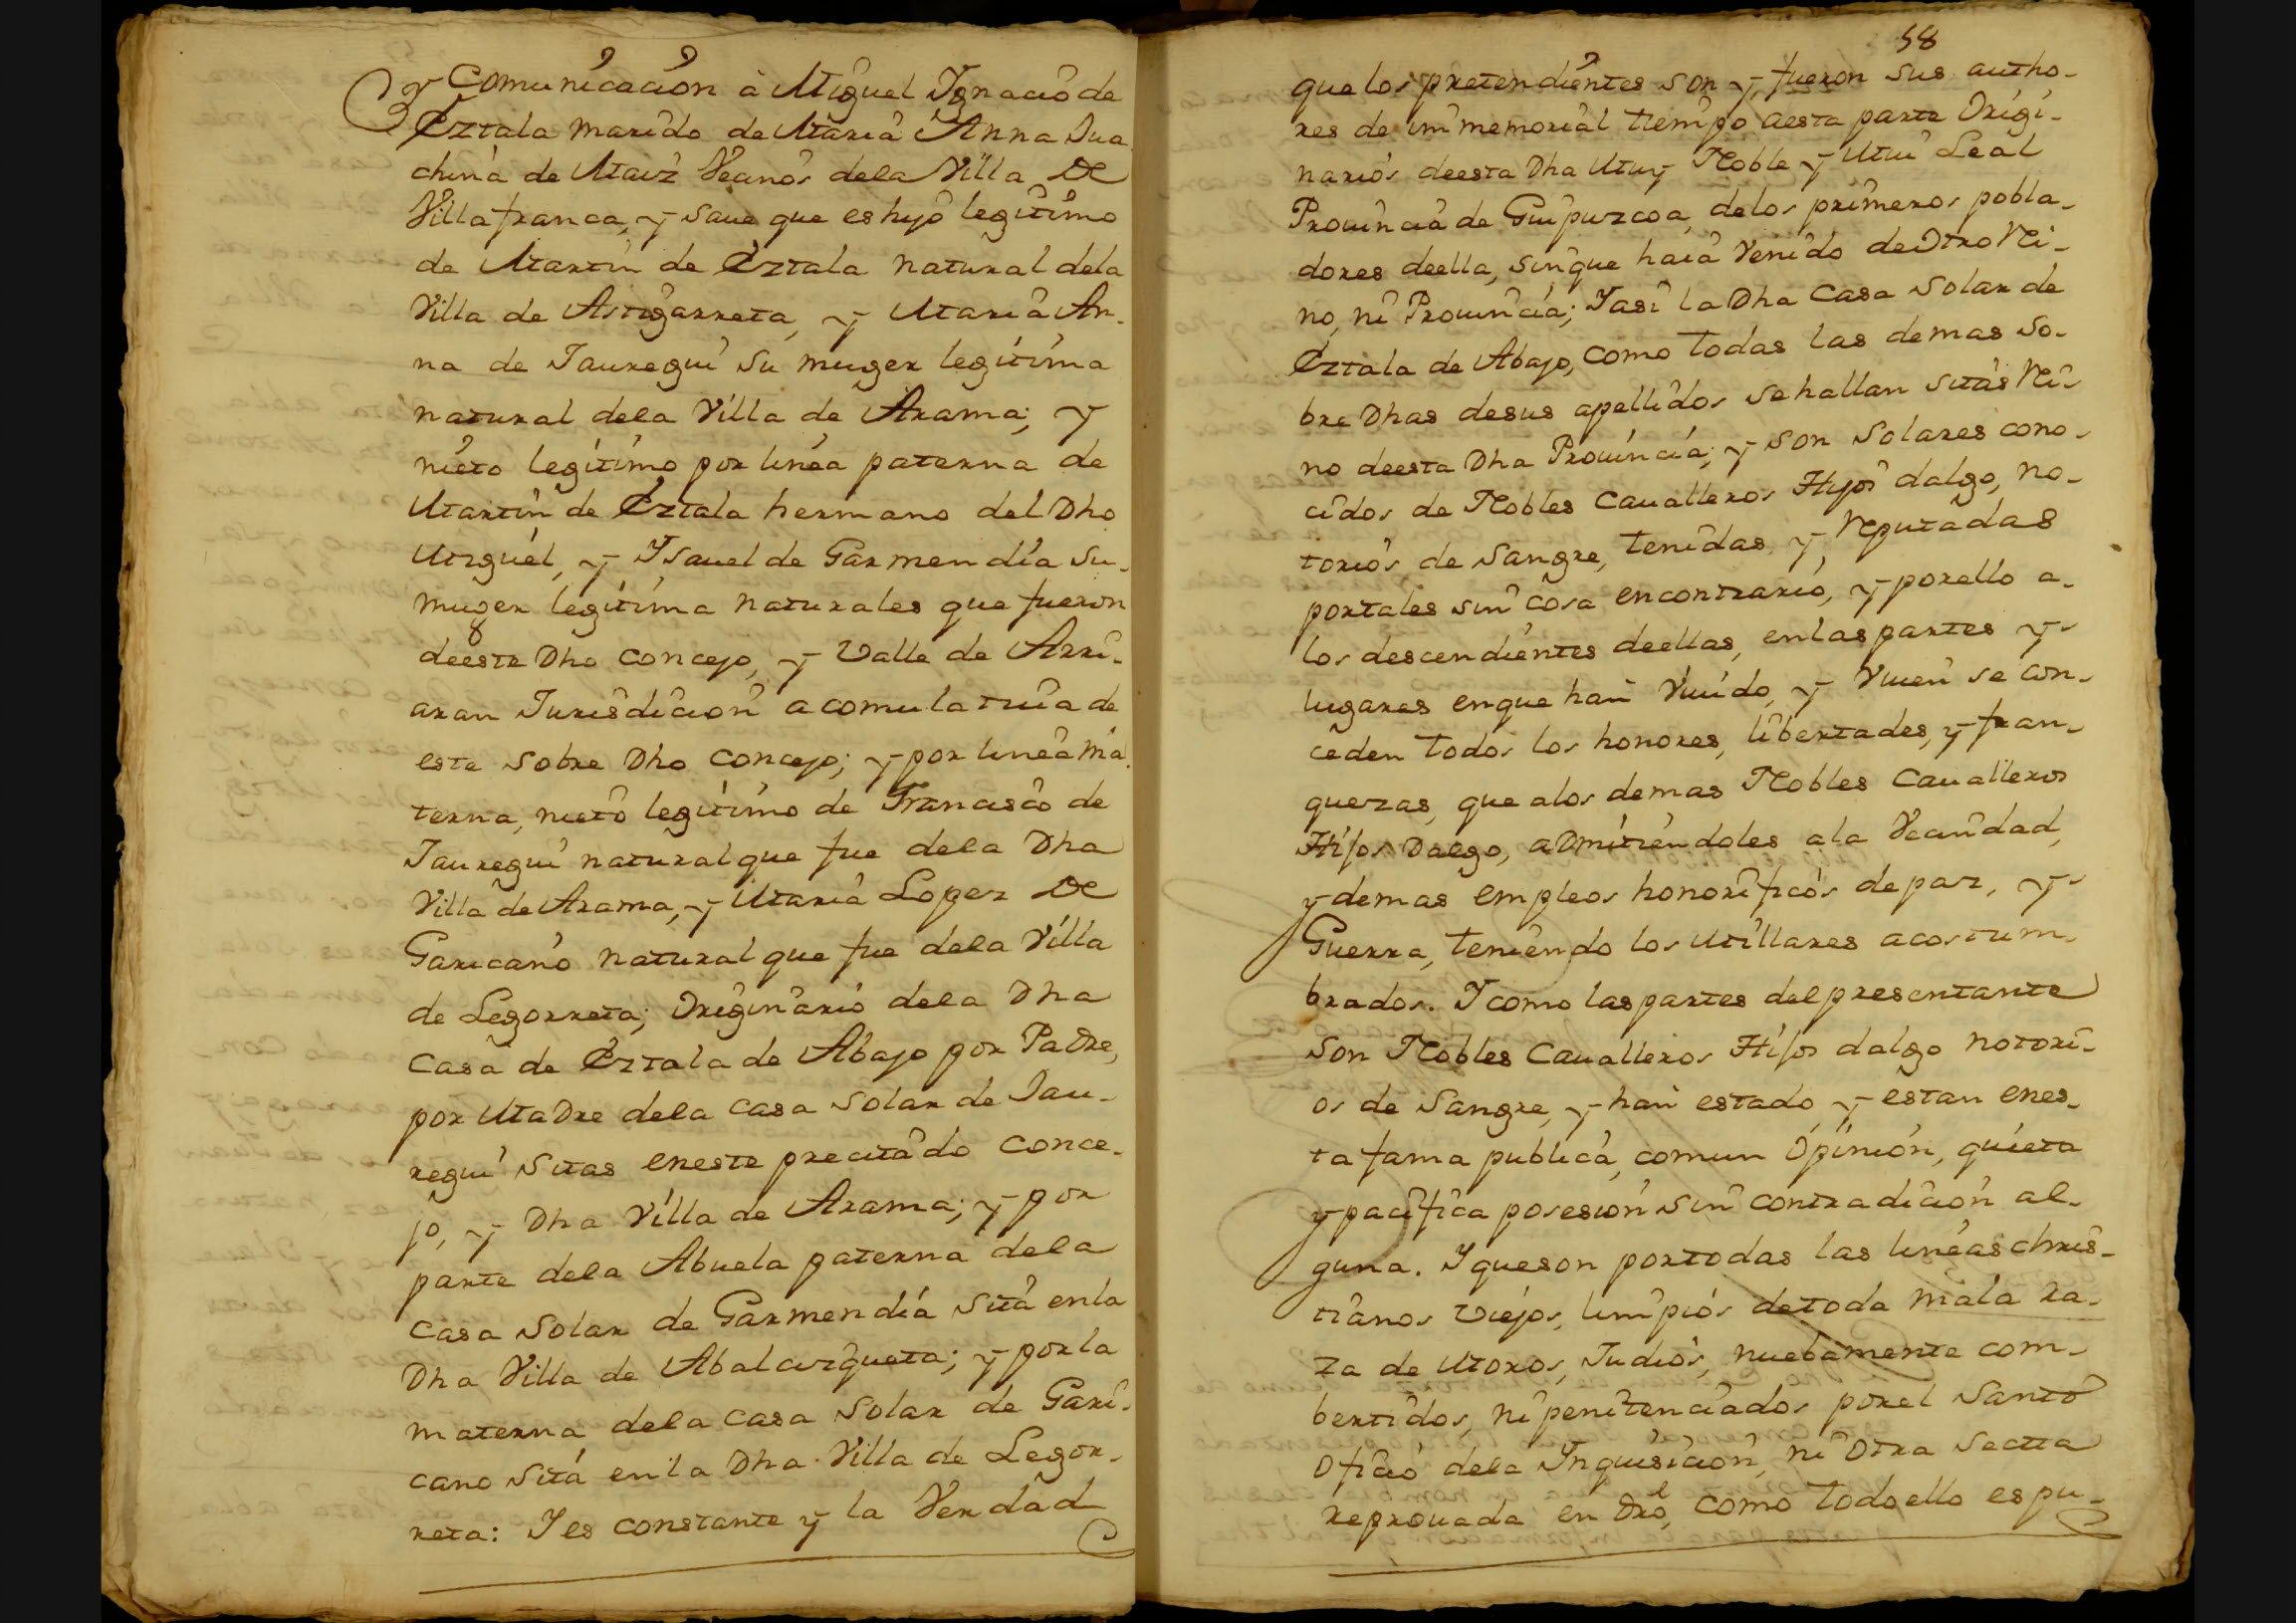 y Comunicacion à Miguel Ygnacio de
Eztala marido de Maria Anna Jua
china de Maiz Vecinos dela Villa De
Villafranca, y save que es hijo legitimo
de Martin de Eztala natural dela
Villa de Astigarreta, y Maria An-
na de Jauregui su muger legitima
natural dela Villa de Arama; y
nieto legitimo por linea paterna de
Martin de Eztala hermano del Dho
Miguel, y Ysavel de Garmendia su
muger legitima naturales que fueron
deeste Dho concejo, y Valle de Arri-
aran Jurisdicion acomulativa de
este sobre Dho concejo; y por linea ma
terna, nieto legitimo de Francisco de
Jauregui natural que fue dela Dha
Villa de Arama, y Maria Lopez De
Garicano natural que fue dela Villa
de Legorreta; Originario dela Dha
Casa de Eztala de Abajo por Padre,
por Madre dela casa solar de Jau-
regui sitas eneste precitado conce-
jo, y Dha Villa de Arama; y por
parte dela Abuela paterna dela
casa solar de Garmendia sita enla
Dha Villa de Abalcizqueta; y porla
materna dela casa solar de Gari-
cano sita enla Dha Villa de Legor-
reta: Y es constante y la Verdad
58
que los pretendientes son y fueron sus autho-
res de immemorial tiempo aesta parte Origi-
narios deesta Dha Muy Noble y Mui Leal
Provincia de Guipuzcoa, delos primeros pobla-
dores deella, sinque haia Venido de Otro Rei-
no, ni Provincia; Y asi la Dha Casa solar de
Eztala de Abajo, como todas las demas so-
bre Dhas desus apellidos se hallan sitas Rei-
no deesta Dha Provincia; y son solares cono-
cidos de Nobles Cavalleros Hijos dalgo, no-
torios de sangre, tenidas, y Reputadas
portales sin cosa encontrario, y porello a
los descendientes deellas, enlas partes y
lugares enque han Vivido, y Viven se con-
ceden todos los honores, libertades, y fran-
quezas, que alos demas Nobles Cavalleros
Hijos Dalgo, aDmitiendoles ala Vecindad,
y demas empleos honorificos de paz, y
Guerra, teniendo los Millares acostum-
brados. Y como las partes del presentante
son Nobles Cavalleros Hijos dalgo notori-
os de Sangre, y han estado, y estan enes-
ta fama publica, comun Opinion, quieta
y pacifica posesion sin contradicion al-
guna. Y queson portodas las lineas chris-
tianos Viejos, limpios detoda mala ra-
za de Moros, Judios, nuebamente com-
bertidos, ni penitenciados porel Santo
Oficio dela Ynquisicion, ni Otra Secta
reprovada en Dro, como todo ello es pu-